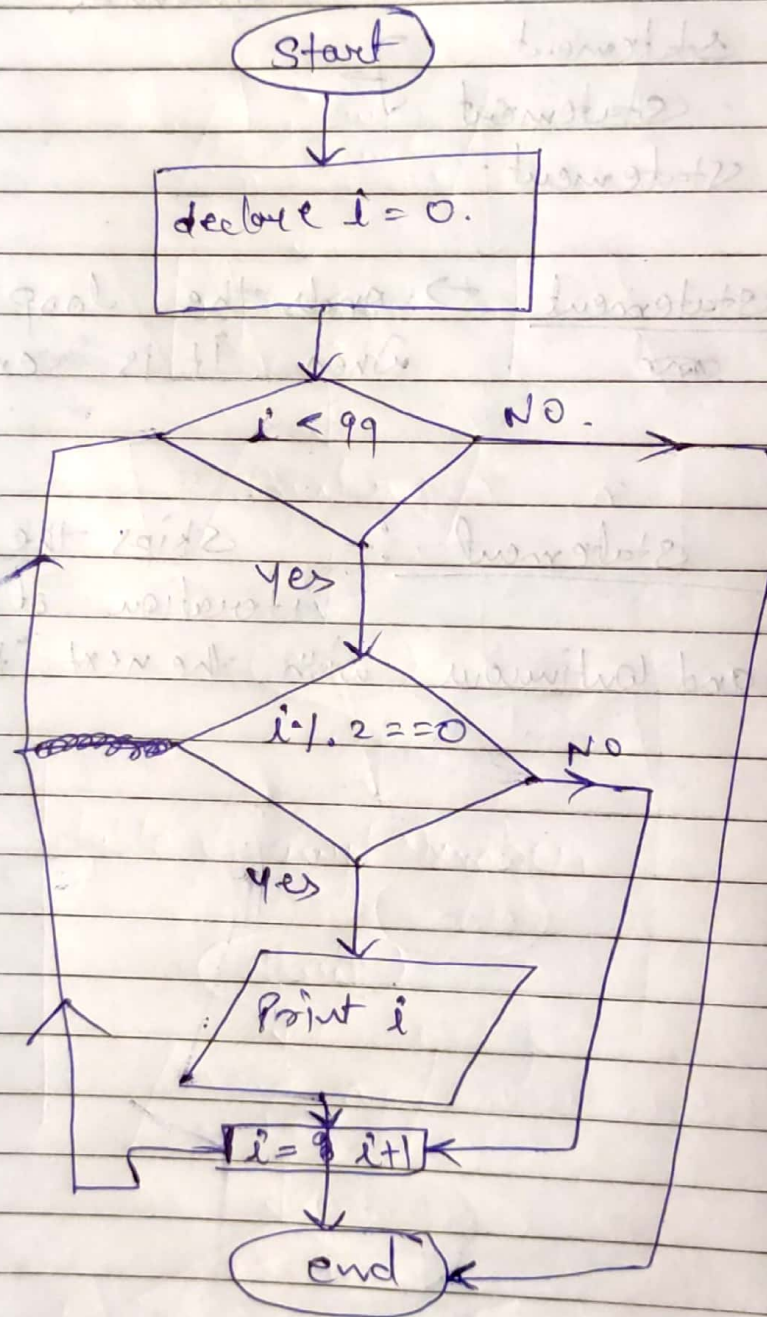 Start
declare i = 0.
i < 99
NO.
Yes
i % 2 == 0
NO
Yes
Print i
i = i+1
end